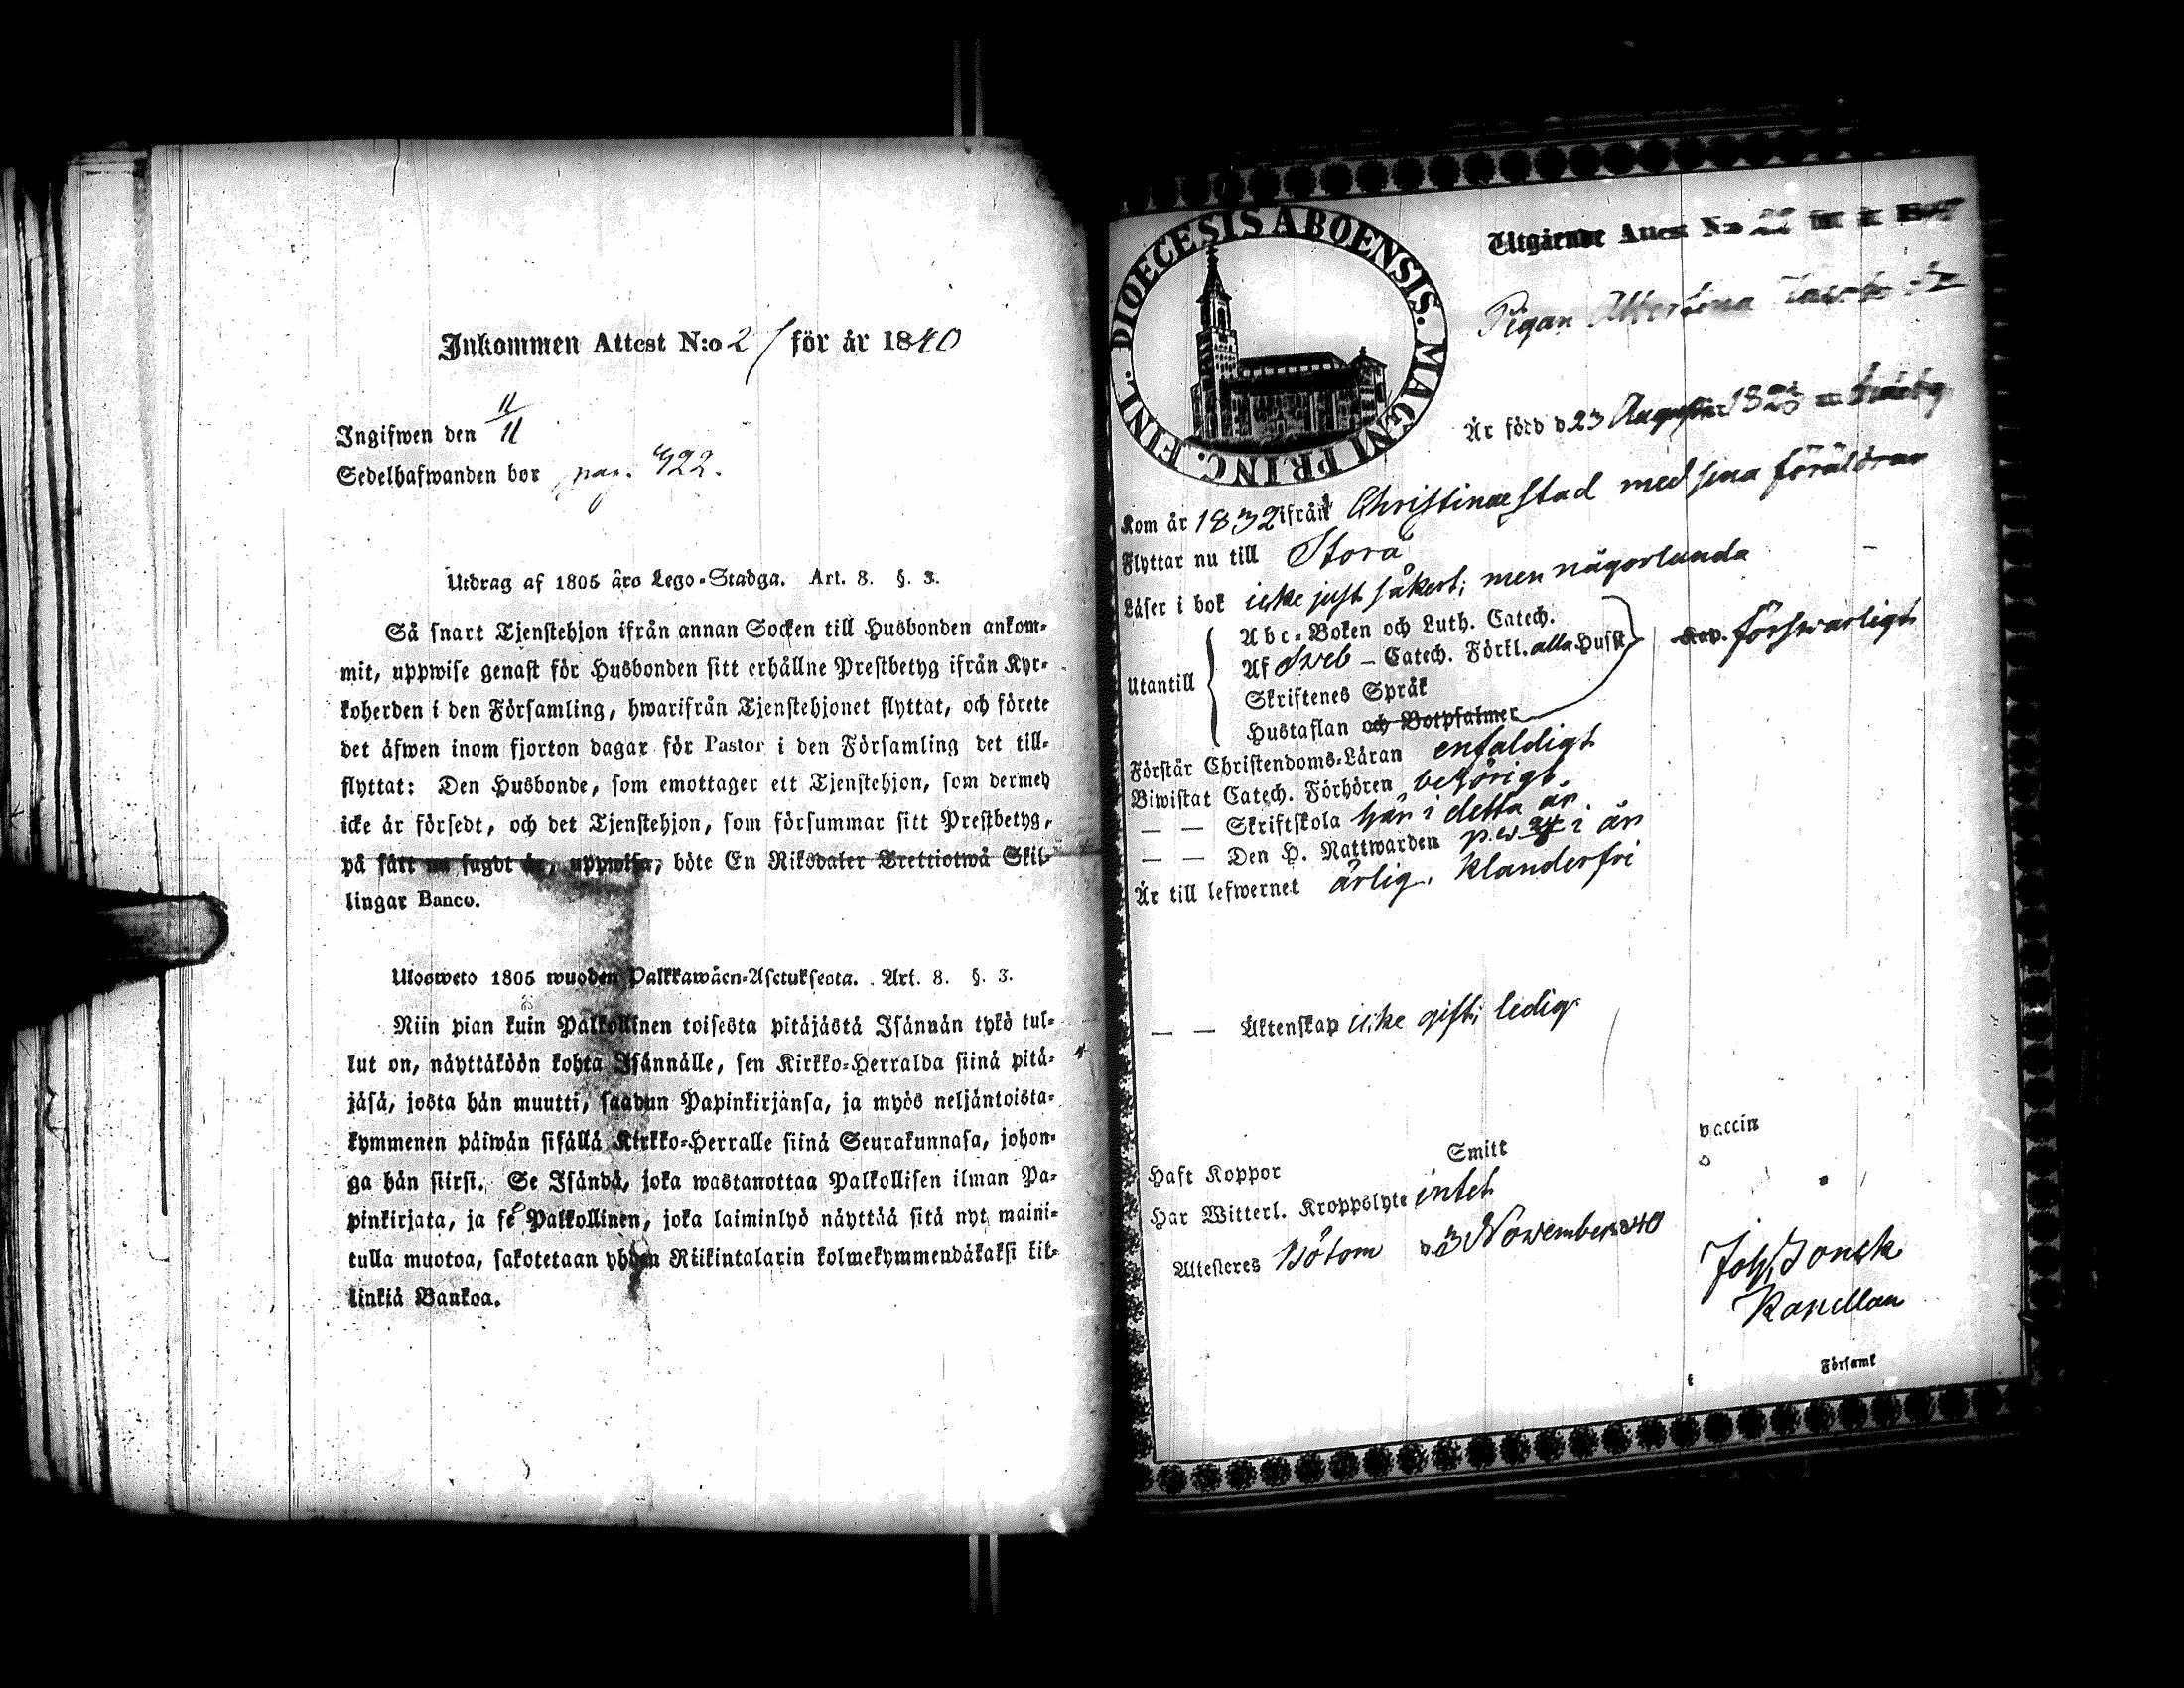 Inkommen Attest N:o 21 för år 1840
Ingifwen den 11/11
Sedelhafwanden bor pag. 422.
Utdrag af 1805 års Lego-Stadga. Art. 8. §. 3.
Så snart Tjenstehjon ifrån annan Socken till Husbonden ankom-
mit, uppwise genast för Husbonden sitt erhållne Prestbetyg ifrån Kyr-
koherden i den Församling, hwarifrån Tjenstehjonet flyttat, och förete
det äfwen inom fjorton dagar för Pastor i den Församling det till-
flyttat: Den Husbonde, som emottager ett Tjenstehjon, som dermed
icke är försedt, och det Tjenstehjon, som försummar sitt Prestbetyg,
på sätt nu sagdt är, uppwisa, böte En Riksdaler Trettiotwå Skil-
lingar Banco.
Ulosweto 1805 wuoden Palkkawäen-Asetuksesta. Art. 8. §. 3.
Niin pian kuin Palkollinen toisesta pitäjästä Isännän tykö tul-
lut on, näyttäköön kohta Isännälle, sen Kirkko-Herralda siinä pitä-
jäsä, josta hän muutti, saadun Papinkirjänsa, ja myös neljäntoista-
kymmenen päiwän sisällä Kirkko-Herralle siinä Seurakunnasa, johon-
ga hän siirsi. Se Isändä, joka wastanottaa Palkollisen ilman Pa-
pinkirjata, ja se Palkollinen, joka laiminlyö näyttää sitä nyt maini-
tulla muotoa, sakotetaan yhden Riikintalarin kolmekymmendäkaksi kil-
linkiä Bankoa.
DIOECESIS ABOENSIS. MAGNI PRINC. FINL.
Utgående Attest N:o 22 för år
Pigan Albertina
Är född d. 23 Augusti 1823
Kom år 1832 ifrån Christinæstad med sina föräldrar
Flyttar nu till Storå
Läser i bok icke just säkert; men någorlunda
Abc-Boken och Luth. Catech.
Af Sveb - Catech. Förkl. alla Husst
Kap. förswarligt
Utantill
Skriftenes Språk
Hustaflan och Botpsalmer
Förstår Christendoms-Läran enfaldigt
Biwistat Catech. Förhören behörigt.
— — Skriftskola här i detta år.
— — Den H. Nattwarden i år
Är till lefwernet ärlig, klanderfri
— — Äktenskap icke gift; ledig
Haft Koppor Smitt vaccin
Har Witterl. Kroppslyte intet
Attesteres Bötom d. 3 November 1840
Joh. Bonck
Kapellan
Församl